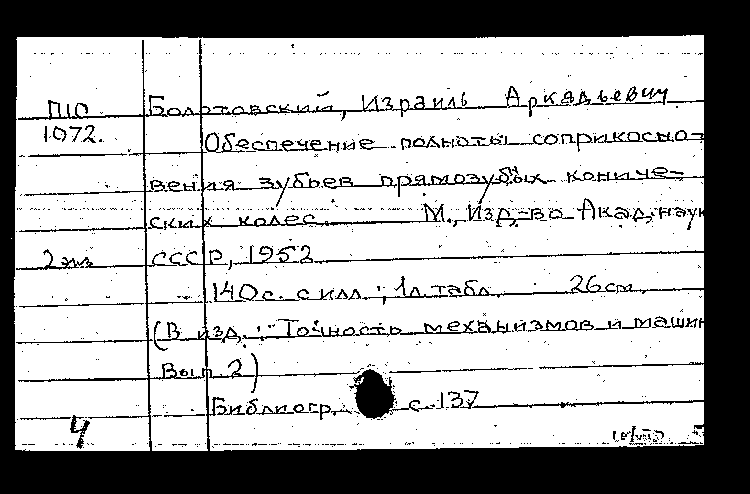 П10 Болотовский, Израиль Аркадьевич
1072. Обеспечение полноты соприкосно-
вения зубьев прямозубых кониче-
ских колес. М., Изд-во Акад. наук
2 экз СССР, 1952
140 с. с илл.; 1 л. табл. 26 см.
(В изд.: Точность механизмов и машин
Вып 2)
Библиогр. с. 137
4